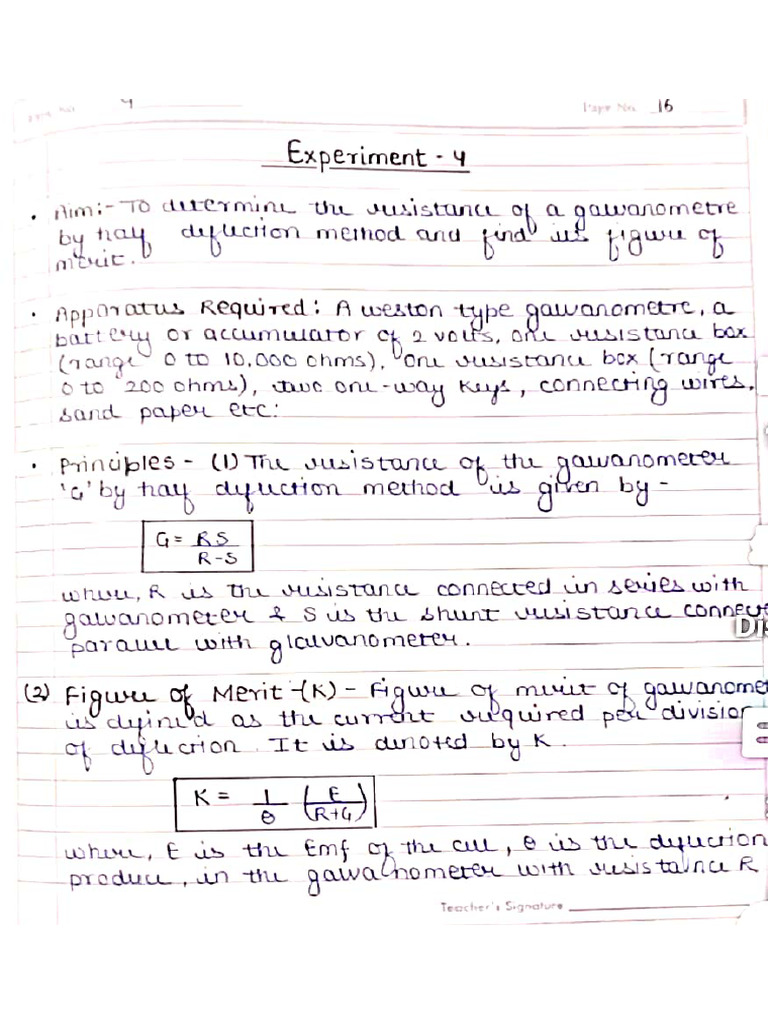 Exp. No. 4 Page No. 16
Experiment - 4
• Aim:- To determine the resistance of a galvanometre
by half deflection method and find its figure of
merit.
• Apparatus Required: A weston type galvanometre, a
battery or accumulator of 2 volts, one resistance box
(range 0 to 10,000 ohms), one resistance box (range
0 to 200 ohms), two one-way keys, connecting wires,
sand paper etc.
• Principles - (1) The resistance of the galvanometer
'G' by half deflection method is given by -
G = RS
R-S
where, R is the resistance connected in series with
galvanometer & S is the shunt resistance connect
parallel with glalvanometer.
(2) Figure of Merit -(K) - Figure of merit of galvanome
is defined as the current required per division
of deflection. It is denoted by K.
K = 1 ( E )
θ (R+G)
where, E is the Emf of the cell, θ is the deflection
produce, in the galvanometer with resistance R
Teacher's Signature